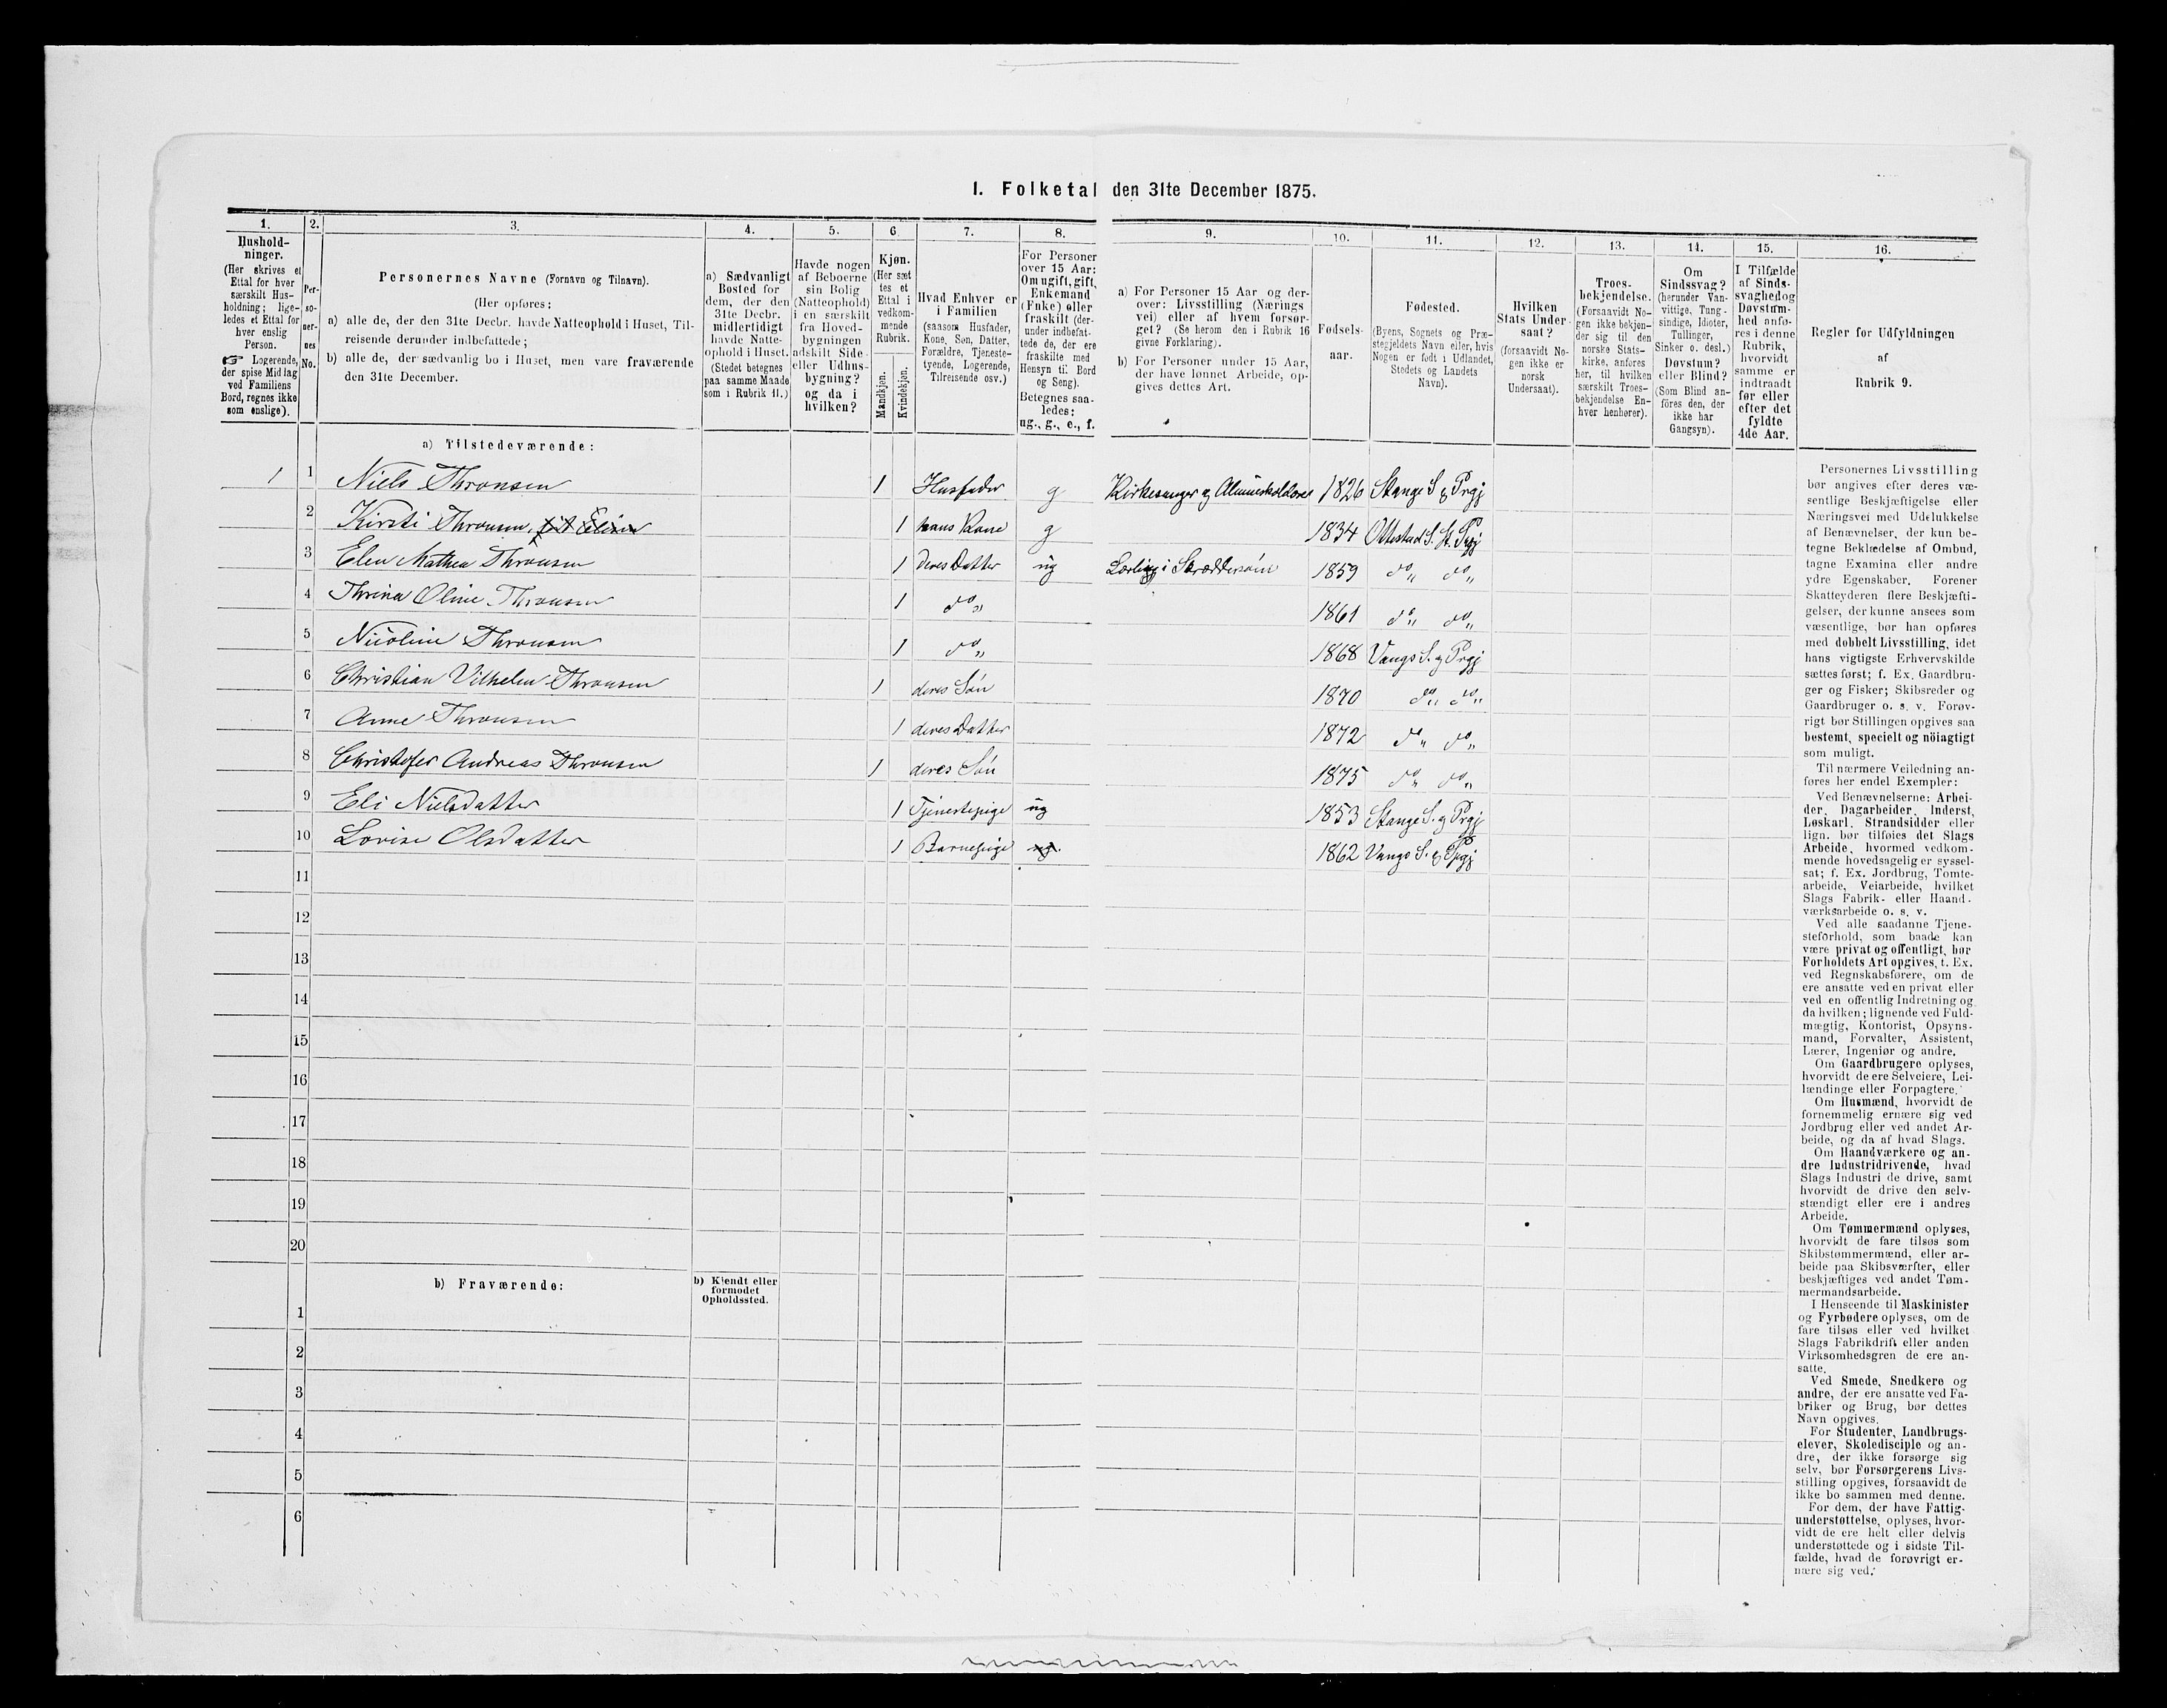 I. Folketal den 31te December 1875.
1. 2. 3. 4. 5. 6. 7. 8. 9. 10. 11. 12. 13. 14. 15. 16.
Hushold-
ninger.
(Her skrives et
Ettal for hver
særskilt Hus-
holdning; lige-
ledes et Ettal for
hver enslig
Person.
☞ Logerende,
der spise Middag
ved Familiens
Bord, regnes ikke
som enslige).
Per-
so-
ner-
nes
No.
Personernes Navne (Fornavn og Tilnavn).
(Her opføres:
a) alle de, der den 31te Decbr. havde Natteophold i Huset, Til-
reisende derunder indbefattede;
b) alle de, der sædvanlig bo i Huset, men vare fraværende
den 31te December.
a) Sædvanligt
Bosted for
dem, der den
31te Decbr.
midlertidigt
havde Natte-
ophold i Huset.
(Stedet betegnes
paa samme Maade
som i Rubrik 11.)
Havde nogen
af Beboerne
sin Bolig
(Natteophold)
i en særskilt
fra Hoved-
bygningen
adskilt Side-
eller Udhus-
bygning?
og da i
hvilken?
Kjøn.
(Her sæt
tes et
Ettal i
vedkom-
mende
Rubrik.
Mandkjøn.
Kvindekjøn.
Hvad Enhver er
i Familien
(saasom Husfader,
Kone, Søn, Datter,
Forældre, Tjeneste-
tyende, Logerende,
Tilreisende osv.)
For Personer
over 15 Aar:
Om ugift, gift,
Enkemand
(Enke) eller
fraskilt (der-
under indbefat-
tede de, der ere
fraskilte med
Hensyn til Bord
og Seng).
Betegnes saa-
ledes:
ug., g., e., f.
a) For Personer 15 Aar og der-
over: Livsstilling (Nærings
vei) eller af hvem forsør-
get? (Se herom den i Rubrik 16
givne Forklaring).
b) For Personer under 15 Aar,
der have lønnet Arbeide, op-
gives dettes Art.
Fødsels-
aar.
Fødested.
(Byens, Sognets og Præ-
stegjeldets Navn eller, hvis
Nogen er født i Udlandet,
Stedets og Landets
Navn).
Hvilken
Stats Under
saat?
(forsaavidt No-
gen ikke er
norsk
Undersaat).
Troes-
bekjendelse.
(Forsaavidt No-
gen ikke bekjen-
der sig til den
norske Stats-
kirke, anføres
her, til hvilken
særskilt Troes-
bekjendelse En-
hver henhører).
Om
Sindssvag?
(herunder Van-
vittige, Tung-
sindige, Idioter,
Tullinger,
Sinker o. desl.)
Døvstum?
eller Blind?
(Som Blind an-
føres den, der
ikke har
Gangsyn).
I Tilfælde
af Sinds-
svaghed og
Døvstum-
hed anfø-
res i denne
Rubrik,
hvorvidt
samme er
indtraadt
før eller
efter det
fyldte
4de Aar.
Regler for Udfyldningen
af
Rubrik 9.
a) Tilstedeværende:
1 1 Niels Thronsen 1 Husfader g Kirkesanger og 1826 Stange S. & Prgj
2 Kirsti Thronsen, 1 hans Kone g 1834 Ottestad S. St. Prgj
3 Elen Mathea Thronsen 1 deres Datter ug i Skræddersöm 1859 do,, do,,
4 Thrina Oline Thronsen 1 do,, 1861 do,, do,,
5 Nicoline Thronsen 1 do,, 1868 Vangs S. og Prgj
6 Christian Vilhelm Thronsen 1 deres Sön 1870 do,, do,,
7 Anne Thronsen 1 deres Datter 1872 do,, do,,
8 Christofer Andreas Thronsen 1 deres Sön 1875 do,, do,,
9 Eli Nielsdatter 1 Tjenestepige ug 1853 Stange S. og Prgj
10 Lovise Olsdatter 1 Barnepige ug. 1862 Vangs S. & Prgj
11
12
13
14
15
16
17
18
19
20
b) Fraværende:
b) Kjendt eller
formodet
Opholdssted.
1
2
3
4
5
6
Personernes Livsstilling
bør angives efter deres væ-
sentlige Beskjæftigelse eller
Næringsvei med Udelukkelse
af Benævnelser, der kun be-
tegne Beklædelse af Ombud,
tagne Examina eller andre
ydre Egenskaber. Forener
Skatteyderen flere Beskjæfti-
gelser, der kunne ansees som
væsentlige, bør han opføres
med dobbelt Livsstilling, idet
hans vigtigste Erhvervskilde
sættes først; f. Ex. Gaardbru-
ger og Fisker; Skibsreder og
Gaardbruger o. s. v. Forøv-
rigt bør Stillingen opgives saa
bestemt, specielt og nöiagtigt
som muligt.
Til nærmere Veiledning an-
føres her endel Exempler:
Ved Benævnelserne: Arbei-
der, Dagarbeider, Inderst,
Løskarl, Strandsidder eller
lign. bør tilføies det Slags
Arbeide, hvormed vedkom-
mende hovedsagelig er syssel-
sat; f. Ex. Jordbrug, Tomte-
arbeide, Veiarbeide, hvilket
Slags Fabrik- eller Haand-
værksarbeide o. s. v.
Ved alle saadanne Tjene-
steforhold, som baade kan
være privat og offentligt, bør
Forholdets Art opgives, t. Ex.
ved Regnskabsførere, om de
ere ansatte ved en privat eller
ved en offentlig Indretning og
da hvilken; lignende ved Fuld-
mægtig, Kontorist, Opsyns-
mand, Forvalter, Assistent,
Lærer, Ingeniør og andre.
Om Gaardbrugere oplyses,
hvorvidt de ere Selveiere, Lei-
lændinge eller Forpagtere.
Om Husmænd, hvorvidt de
fornemmelig ernære sig ved
Jordbrug eller ved andet Ar-
beide, og da af hvad Slags.
Om Haandværkere og an-
dre Industridrivende, hvad
Slags Industri de drive, samt
hvorvidt de drive den selv-
stændigt eller ere i andres
Arbeide.
Om Tømmermænd oplyses,
hvorvidt de fare tilsøs som
Skibstømmermænd, eller ar-
beide paa Skibsværfter, eller
beskjæftiges ved andet Tøm-
mermandsarbeide.
I Henseende til Maskinister
og Fyrbødere oplyses, om de
fare tilsøs eller ved hvilket
Slags Fabrikdrift eller anden
Virksomhedsgren de ere an-
satte.
Ved Smede, Snedkere og
andre, der ere ansatte ved Fa-
briker og Brug, bør dettes
Navn opgives.
For Studenter, Landbrugs-
elever, Skoledisciple og an-
dre, der ikke forsørge sig
selv, bør Forsørgerens Livs-
stilling opgives, forsaavidt de
ikke bo sammen med denne.
For dem, der have Fattig-
understøttelse, oplyses, hvor-
vidt de ere helt eller delvis
understøttede og i sidste Til-
fælde, hvad de forøvrigt er-
nære sig ved.